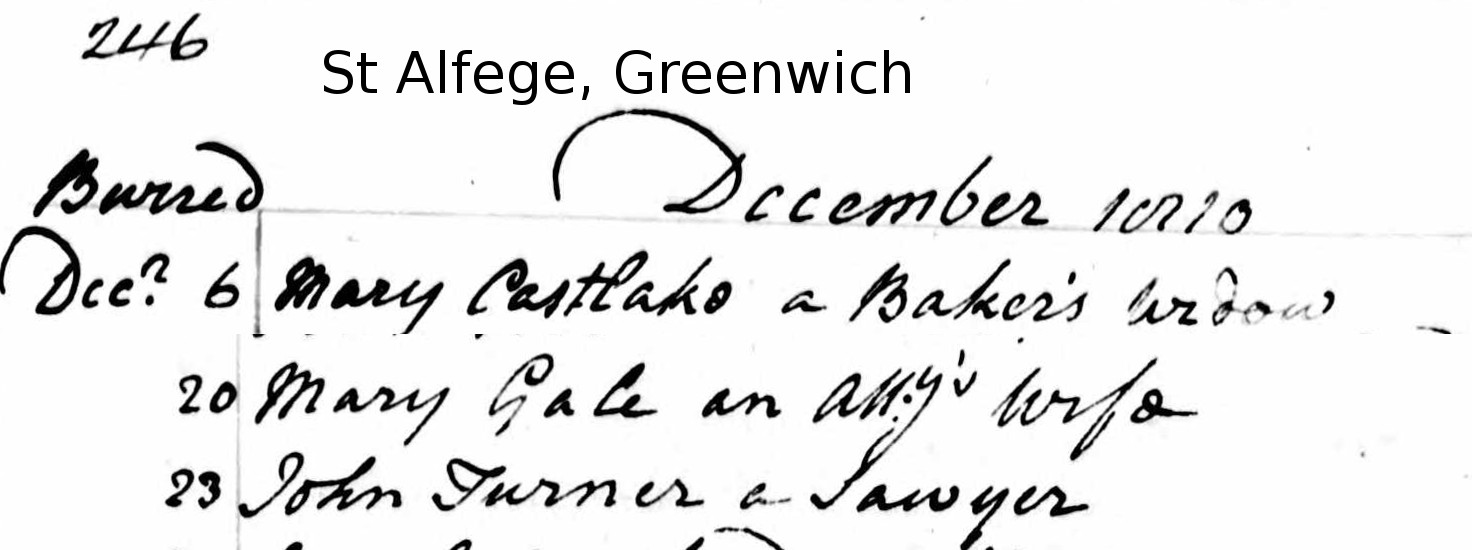 246
St Alfege, Greenwich
Buried December
Decr. 6 Mary Castlake a Baker's widow
20 Mary Gale an Atty's wife
23 John Turner a Sawyer